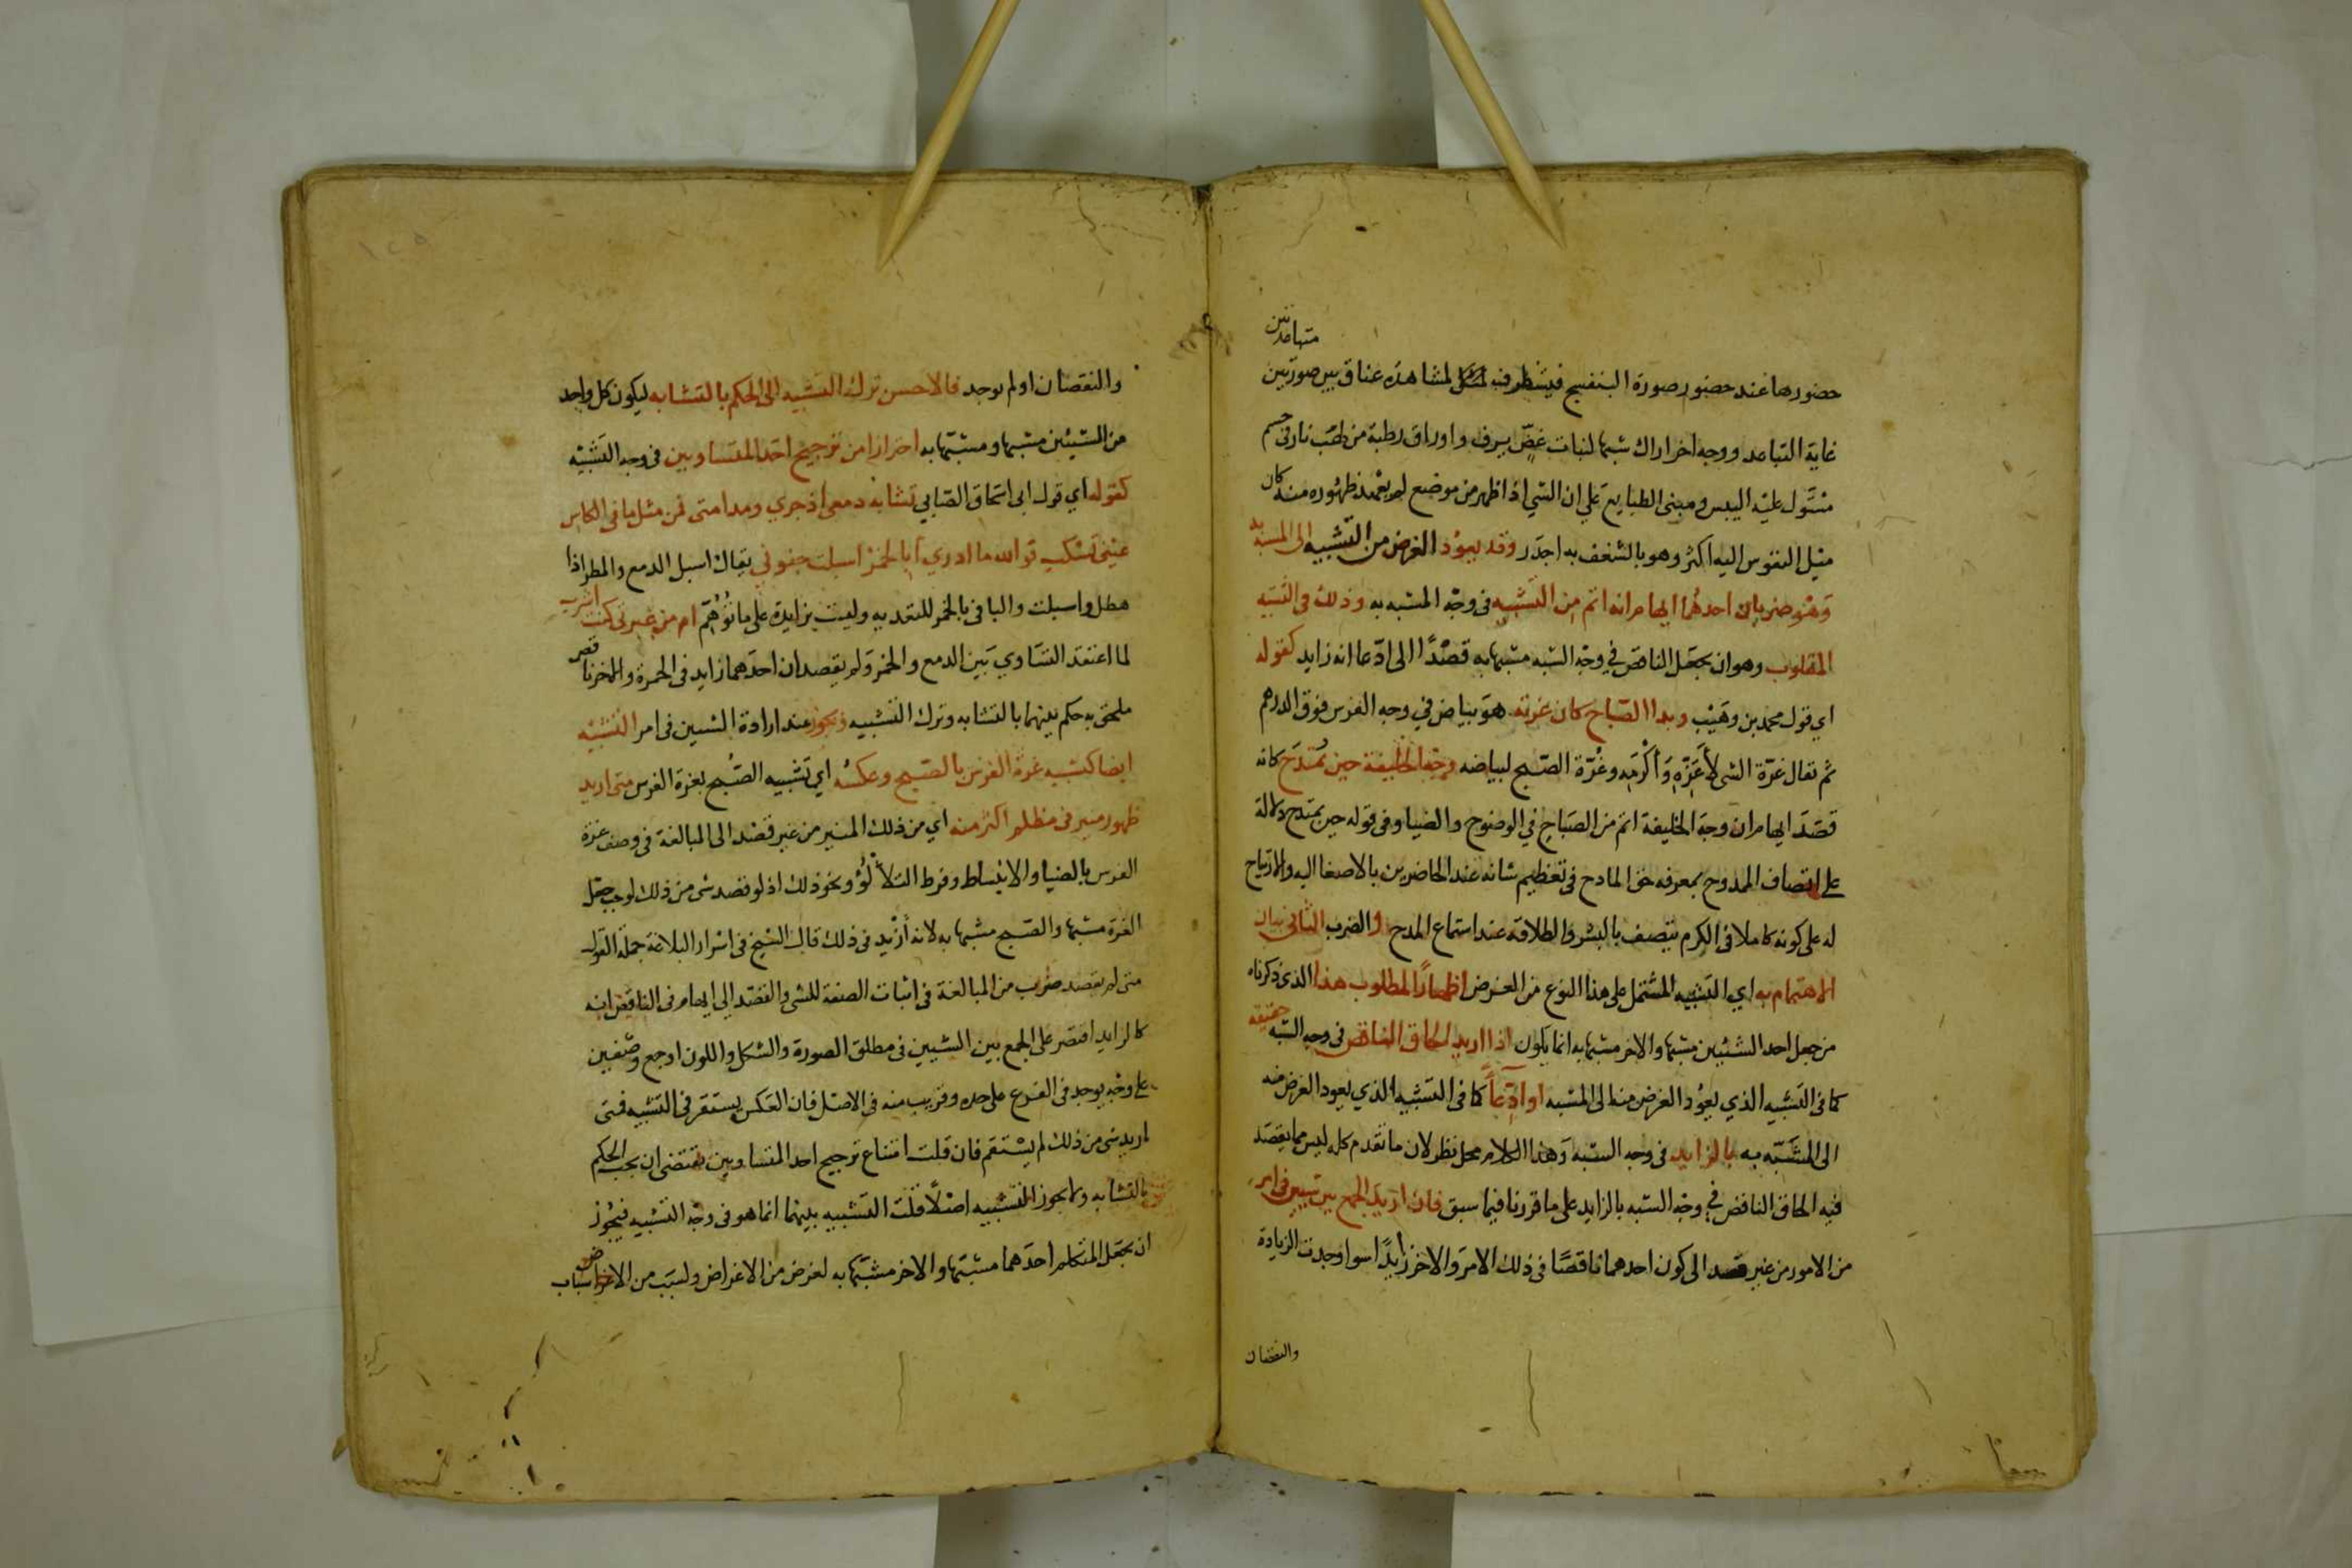 متباعدتين
حضورها عند حضور صورة البنفسج فيستطرف لمشاهدة عناق بين صورتين
غاية التباعد ووجه اخر اراك شبها لنبات غض يرف واوراق رطبة من لهب نار في جسم
مستول عليه اليبس ومبنى الطبايع على ان الشي اذا ظهر من موضع لم يعهد ظهوره منه كان
ميل النفوس اليه اكثر وهو بالشغف به اجدر وقد يعود الغرض من التشبيه الى المشبه به
وهو ضربان احدهما ايهام انه اتم من التشبيه في وجه المشبه به وذلك في التشبيه
المقلوب وهو ان يجعل الناقص في وجه الشبه مشبها به قصدا الى ادعا انه زايد كقوله
اي قول محمد بن وهيب وبدا الصباح كان غرته هو بياض في وجه الفرس فوق الدرهم
ثم يقال غرة الشي لأعزه وأكرمه وغرة الصبح لبياضه وجه الخليفة حين يمتدح كانه
قصد ايهام ان وجه الخليفة اتم من الصباح في الوضوح والضيا وفي قوله حين يمتدح دلالة
على اتصاف الممدوح بمعرفة حق المادح في تعظيم شانه عند الحاضرين بالاصغا اليه والارتياح
له على كونه كاملا في الكرم يتصف بالبشر والطلاقة عند استماع المدح والضرب الثاني بيان
الاهتمام به اي التشبيه المشتمل على هذا النوع من الغرض اظهار المطلوب هذا الذي ذكرناه
من جعل احد الشيئين مشبها والاخر مشبها به انما يكون اذا اريد الحاق الناقص في وجه الشبه حقيقة
كما في التشبيه الذي يعود الغرض منه الى المشبه او ادعاً كما في التشبيه الذي يعود الغرض منه
الى المشبه به بالزايد في وجه الشبه وهذا الكلام محل نظر لان ما تقدم كله ليس مما يقصد
فيه الحاق الناقص في وجه الشبه بالزايد على ما قررنا فيما سبق فان اريد الجمع بين شيين في امر
من الامور من غير قصد الى كون احدهما ناقصًا في ذلك الامر والاخر زايدًا سوا وجدت الزيادة
والنقصان
والنقصان او لم يوجد فالاحسن ترك التشبيه الى الحكم بالتشابه ليكون كل واحد
من الشيئين مشبها ومشبها به احترازا من ترجيح احد المتساويين في وجه التشبيه
كقوله اي قول ابى اسحاق الصابي تشابه دمعى اذ جري ومدامتى فمن مثل ما في الكاس
عيني تسكب فو الله ما ادري أبا الخمر اسبلت جفوني يقال اسبل الدمع والمطر اذا
هطل واسبلت والبا في بالخمر للتعدية وليست بزايدة على ما توهم ام من عبرتي كنت اشرب
لما اعتقد التساوي بين الدمع والخمر ولم يقصد ان احدهما زايد في الحمرة والاخر ناقص
ملحق به حكم بينهما بالتشابه وترك التشبيه ويجوز عند ارادة الشيين في امر التشبيه
ايضا كتشبيه غرة الفرس بالصبح وعكسه اي تشبيه الصبح بغرة الفرس متى اريد
ظهور منير في مظلم اكثر منه اي من ذلك المنير من غير قصد الى المبالغة في وصف غرة
الفرس بالضيا والانبساط وفرط التلألؤ ونحو ذلك اذ لو قصد شي من ذلك لوجب جعل
الغرة مشبها والصبح مشبها به لانه أزيد في ذلك قال الشيخ في اسرار البلاغة جملة القول
متى لم يقصد ضرب من المبالغة في اثبات الصفة للشي والقصد الى ايهام في الناقص انه
كالزايد اقتصر على الجمع بين الشيين في مطلق الصورة والشكل واللون او جمع وصفين
على وجه يوجد في الفرع على حده وقريب منه في الاصل فان العكس يستقر في التشبيه فمتى
اريد شي من ذلك لم يستقم فان قلت امتناع ترجيح احد المتساويين يقتضى ان يجب الحكم
بالتشابه ولا يجوز التشبيه اصلاً قلت التشبيه بينهما انما هو في وجه التشبيه فيجوز
ان يجعل المتكلم احدهما مشبها والاخر مشبها به لغرض من الاغراض ولسبب من الاسباب